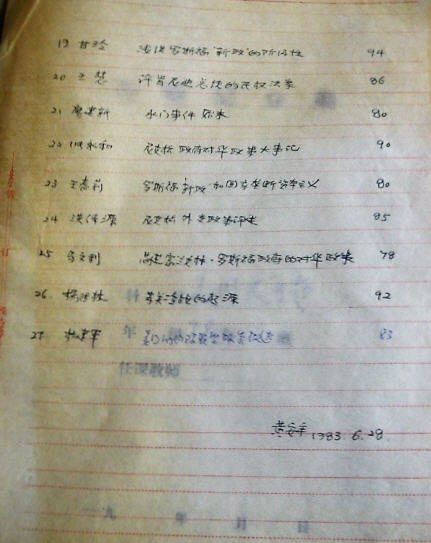 19 甘玲 浅谈罗斯福"新政"的阶级性 94
20 王慧 评肯尼迪总统的民权决策 86
21 廖建新 水门事件始末 80
22 永和 尼克松政府对华政策大事记 90
23 王嘉莉 罗斯福"新政"和国家垄断资本主义 80
24 洪伟源 尼克松外交政策评述 85
25 文 富兰克林·罗斯福政府的对华政策 78
26 杨 美苏冷战的起源 92
27 建军 美 83
任课教师
黄安年 1983.6.28
一九 年 月 日